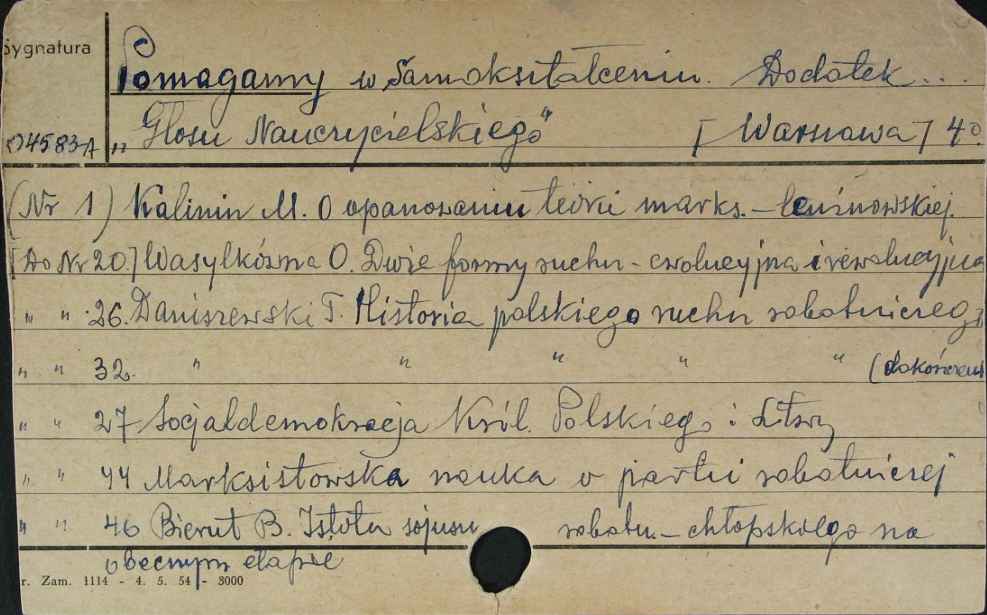 Sygnatura
Pomagamy w Samokształceniu. Dodatek...
04583-A
„Głosu Nauczycielskiego" [Warszawa] 4°.
(Nr 1) Kalinin M. O opanowaniu teorii marks.-leninowskiej.
[Do Nr 20.] Wasylkówna O. Dwie formy ruchu - ewolucyjna i rewolucyjna
" " 26. Daniszewski T. Historia polskiego ruchu robotniczego
" " 32. " " " " " (dokończenie
" " 27 Socjaldemokracja Król. Polskiego i Litwy
" " 44 Marksistowska nauka o partii robotniczej
" " 46 Bierut B. Istota sojuszu robotn.-chłopskiego na
obecnym etapie
r. Zam. 1114 - 4. 5. 54 - 3000